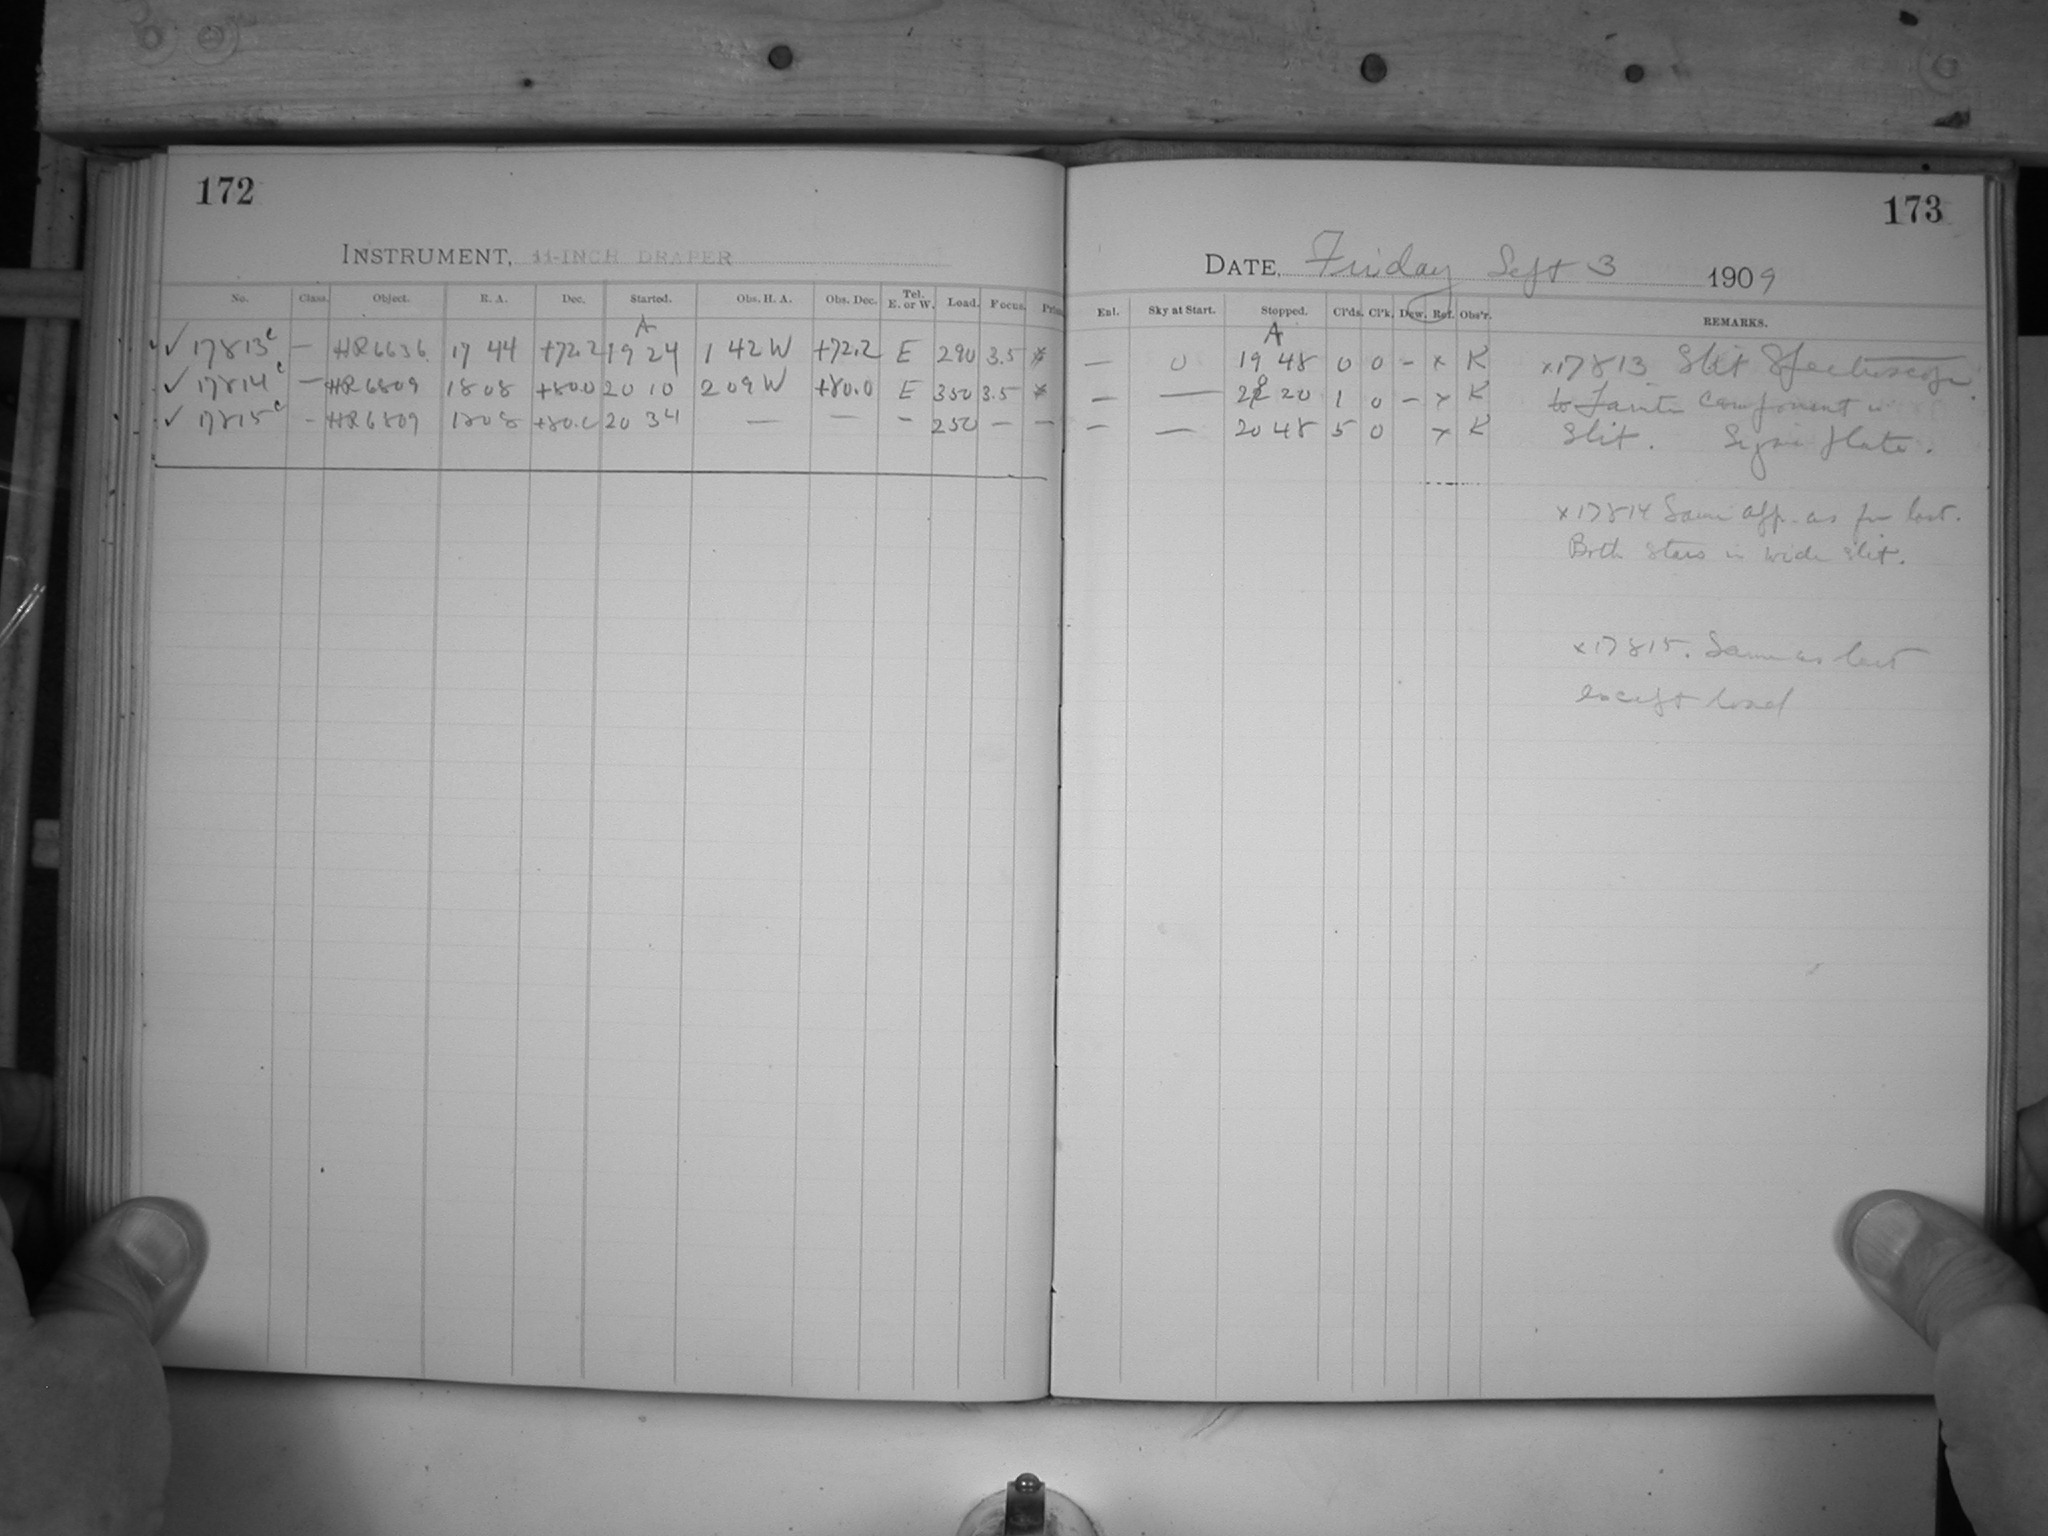 172
INSTRUMENT, 11-INCH DRAPER
No. Class. Object. R. A. Dec. Started. Obs. H. A. Obs. Dec. Tel. E. or W. Load. Focus.
A
✓ 17813c — HR6636 17 44 +72.2 19 24 1 42 W +72.2 E 290 3.5 *
✓ 17814c — HR6809 1808 +80.0 20 10 2 09 W +80.0 E 350 3.5 *
✓ 17815c - HR6809 1808 +80.0 20 34 — — - 250 — —
173
DATE, Friday Sept 3 1909
Enl. Sky at Start. Stopped. Cl'ds. Cl'k. Dew. Ref. Obs'r. REMARKS.
A
— 0 19 48 0 0 - x K x17813 Slit Spectroscope
— — 20 20 1 0 - x K Fainter Component in
— — 20 48 5 0 x K Slit. Sigma plate.
x17814 Same app. as for last.
Both stars in wide slit.
x17815. Same as last
except load